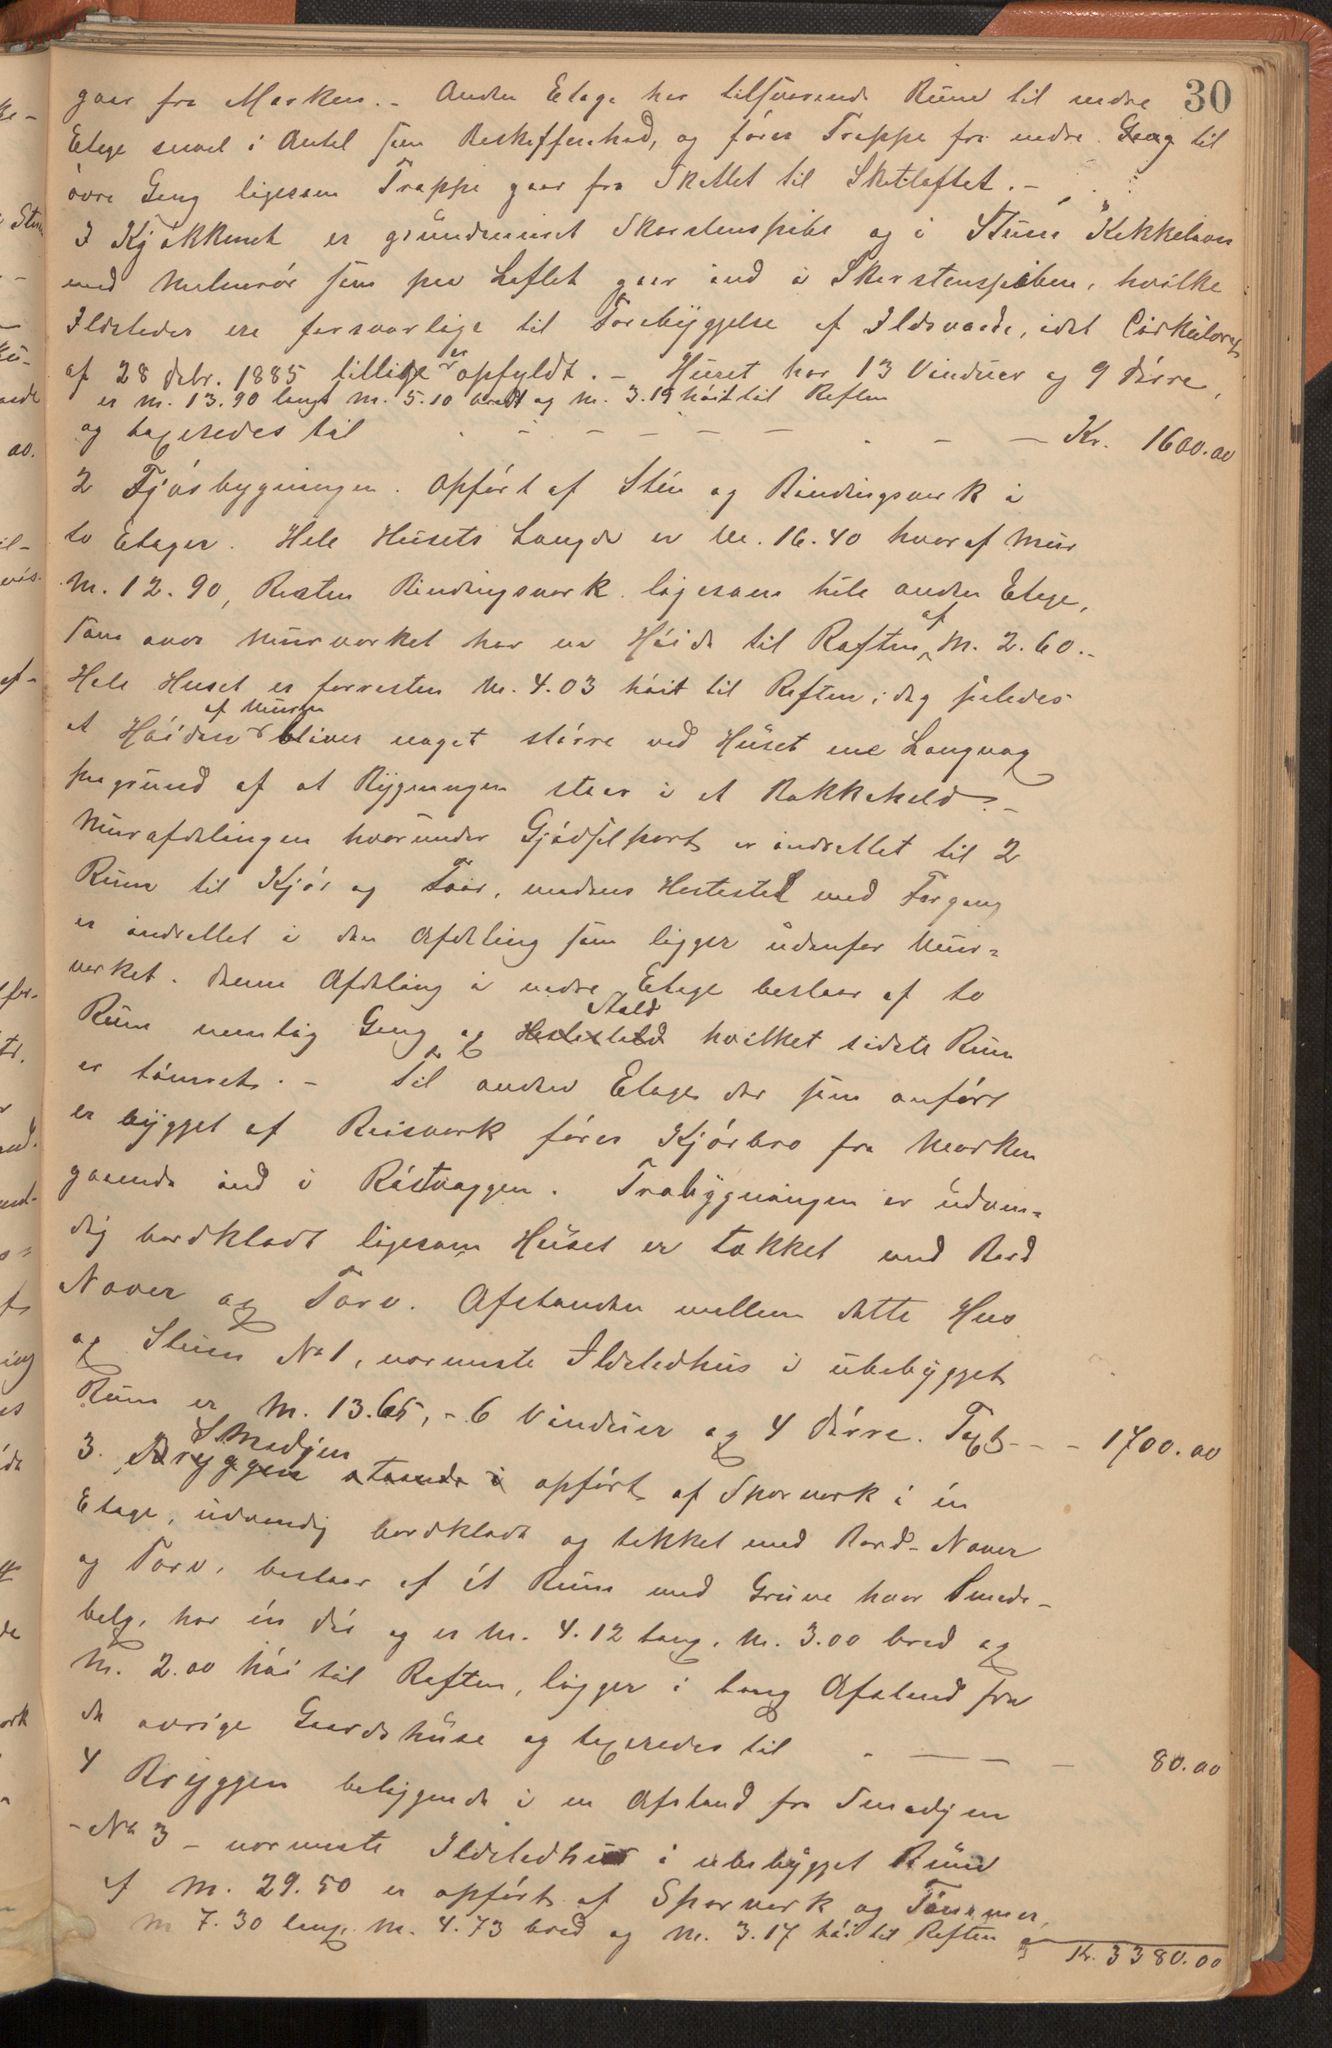 30
gaar fra Marken. - Anden Etage har tilsvarende Rum til nedre
Etage saavel i Antal som Beskaffenhed, og fører Trappe fra nedre Gang til
øvre Gang ligesom Trappe gaar fra Skottet til Skotloftet. -
I Kjøkkenet er grundmuret Skorstenspibe og i Stuen Kakkelovn
med Malmrør som paa Loftet gaar ind i Skorstenspiben, hvilke
Ildsteder ere forsvarlige til Forebyggelse af Ildsvaade, idet Cirkulæret
af 28 Debr. 1885 tillige er opfyldt. - Huset har 13 Vinduer og 9 Dørre,
er M. 13.90 langt M. 5.10 bredt og M. 3.19 høit til Raften
og taxeredes til - - - - - - - Kr. 1600.00
2 Fjøsbygningen. Opført af Sten og Bindingsverk i
to Etager. Hele Husets Længde er M. 16.40 hvoraf Mur
M. 12.90, Resten Bindingsverk ligesom hele anden Etage,
som over Murverket har en Høide til Raften af M. 2.60. -
Hele Huset er forresten M. 4.03 høit til Raften, dog saaledes
at Høiden af Muren bliver noget større ved Huset ene Langvæg
paagrund af at Bygningen staar i et Bakkeheld. -
Murafdelingen hvorunder Gjødselport er indrettet til 2
Rum til Kjør og Faar, medens Hestestal med Forgang
er indrettet i den Afdeling som ligger udenfor Mur=
verket. Denne Afdeling i nedre Etage bestaar af to
Rum nemlig Gang og Hestestald Stald hvilket sidste Rum
er tømret. - Til anden Etage der som anført
er bygget af Reisverk fører Kjørbro fra Marken
gaaende ind i Røstvæggen. Træbygningen er udven=
dig bordklædt ligesom Huset er tækket med Bord
Næver og Torv. Afstanden mellem dette Hus
og Stuen No 1, nærmeste Ildstedhus i ubebygget
Rum er M. 13.65, - 6 Vinduer og 4 Dørre. Taxt - - - 1700.00
3. Bryggen staaende i Smedjen opført af Sparverk i én
Etage, udvendig bordklædt og tækket med Bord- Næver
og Torv, bestaar af ét Rum med Grue hvor Smede-
belg, har én Dør og er M. 4.12 lang, M. 3.00 bred og
M. 2.00 høi til Raften, ligger i lang Afstand fra
de øvrige Gaardshuse og taxeredes til - - - 80.00
4 Bryggen beliggende i en Afstand fra Smedjen
- No 3 - nærmeste Ildstedhus i ubebygget Rum
af M. 29.50 er opført af Sparverk og Tømmer,
M 7.30 lang, M. 4.73 bred og M. 3.17 høi til Raften og
Kr. 3380.00